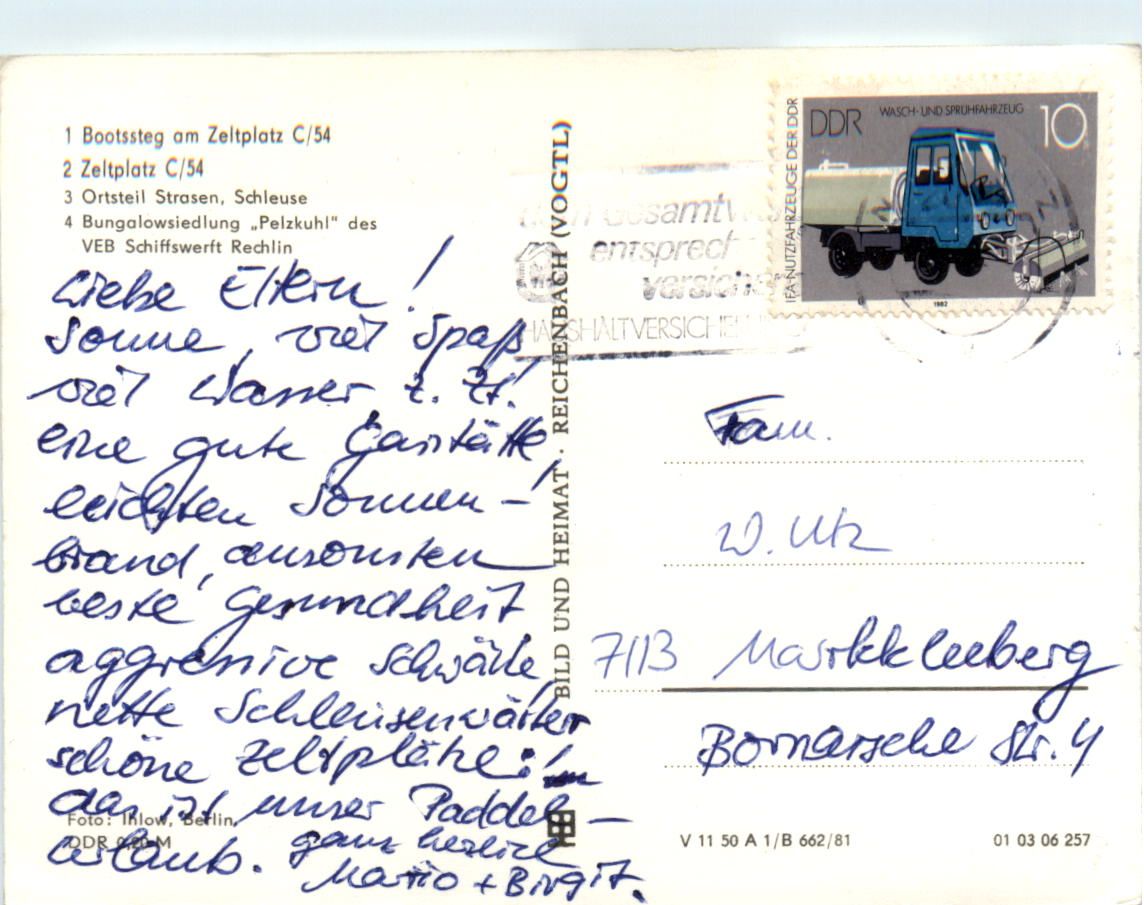 1 Bootssteg am Zeltplatz C/54
2 Zeltplatz C/54
3 Ortsteil Strasen, Schleuse
4 Bungalowsiedlung „Pelzkuhl" des
VEB Schiffswerft Rechlin
Liebe Eltern!
Sonne, viel Spaß,
viel Wasser z. Zt.
eine gute Gaststätte,
leichten Sonnen-
brand, ansonsten
beste Gesundheit
aggressive Schwäne,
nette Schleusenwärter
schöne Zeltplätze:
das ist unser Paddel-
urlaub.
ganz herzlich
Mario + Birgit.
Foto: Ihlow, Berlin
DDR 0,20 M
BILD UND HEIMAT · REICHENBACH (VOGTL)
entsprech
versiche
HAUSHALTVERSICHE
IFA-NUTZFAHRZEUGE DER DDR
DDR
WASCH- UND SPRÜHFAHRZEUG
10
1982
Fam.
W. Utz
7113 Markkleeberg
Bornaische Str. 4
V 11 50 A 1/B 662/81
01 03 06 257